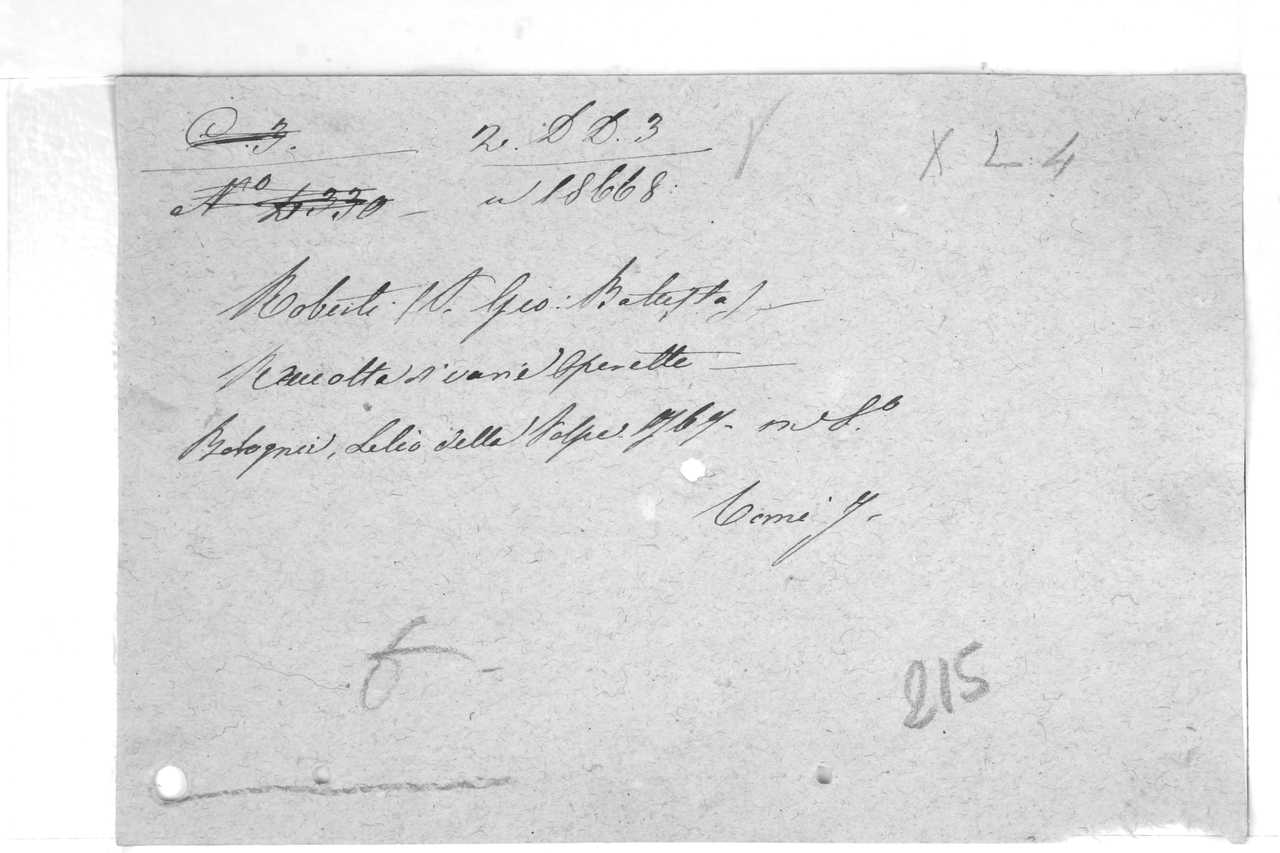 C. 3. 2. D D. 3 X L. 4
N.º 4330 - n 18668
Roberti (P. Gio: Battista) -
Raccolta di varie Operette -
Bologna, Lelio della Volpe. 1767. in 8.º
Tomi 7.
215